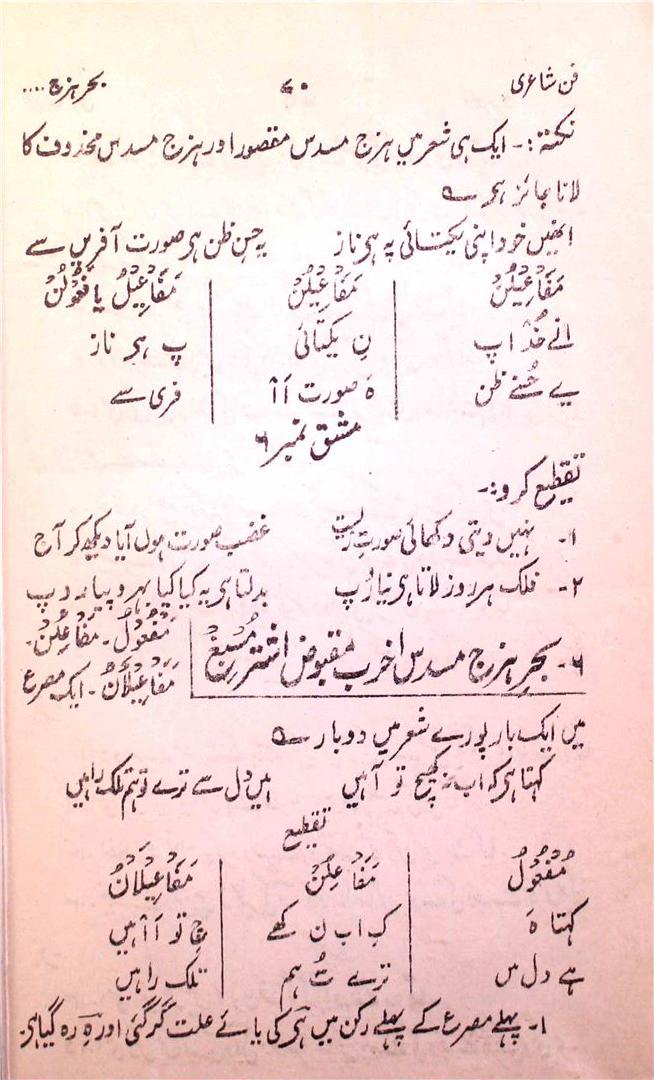 فن شاعری ۷۰ بحر ہزج ....
نکتہ :- ایک ہی شعر میں ہزج مسدس مقصور اور ہزج مسدس محذوف کا
لانا جائز ہے ؎
انھیں خود اپنی یکتائی پہ ہے ناز یہ حسن ظن ہے صورت آفریں سے
مَفَاعِیلُن مَفَاعِیلُن مَفَاعِیلُ یا فَعُولُن
انے خُدْ اپ نِ یکتائی پ ہے ناز
یے حُسنے ظن ہَ صورت آا فری سے
مشق نمبر ۶
تقطیع کرو :-
۱- نہیں دیتی دکھائی صورت زیست غضب صورت ہوں آیا دیکھ کر آج
۲- فلک ہر روز لاتا ہے نیا رُپ بدلتا ہے یہ کیا کیا بہروپیا روپ
۶- بحر ہزج مسدس اخرب مقبوض اشترِ مُسبغ
مَفْعُولُ - مَفَاعِلُن -
مَفَاعِیلَانُ - ایک مصرع
میں ایک بار پورے شعر میں دو بار ؎
کہتا ہے کہ اب نہ کھیچ تو آہیں ہیں دل سے ترے تو ہم تلک راہیں
تقطیع
مَفْعُولُ مَفَاعِلُنْ مَفَاعِیلَانُ
کہتا ہَ کِ اب نَ کھے چ تو اَاہیں
ہے دل س ترے تُ ہم تلک راہیں
۱- پہلے مصرع کے پہلے رکن میں ہے کی یائے علت گر گئی اور ہِ رہ گیا ہے۔